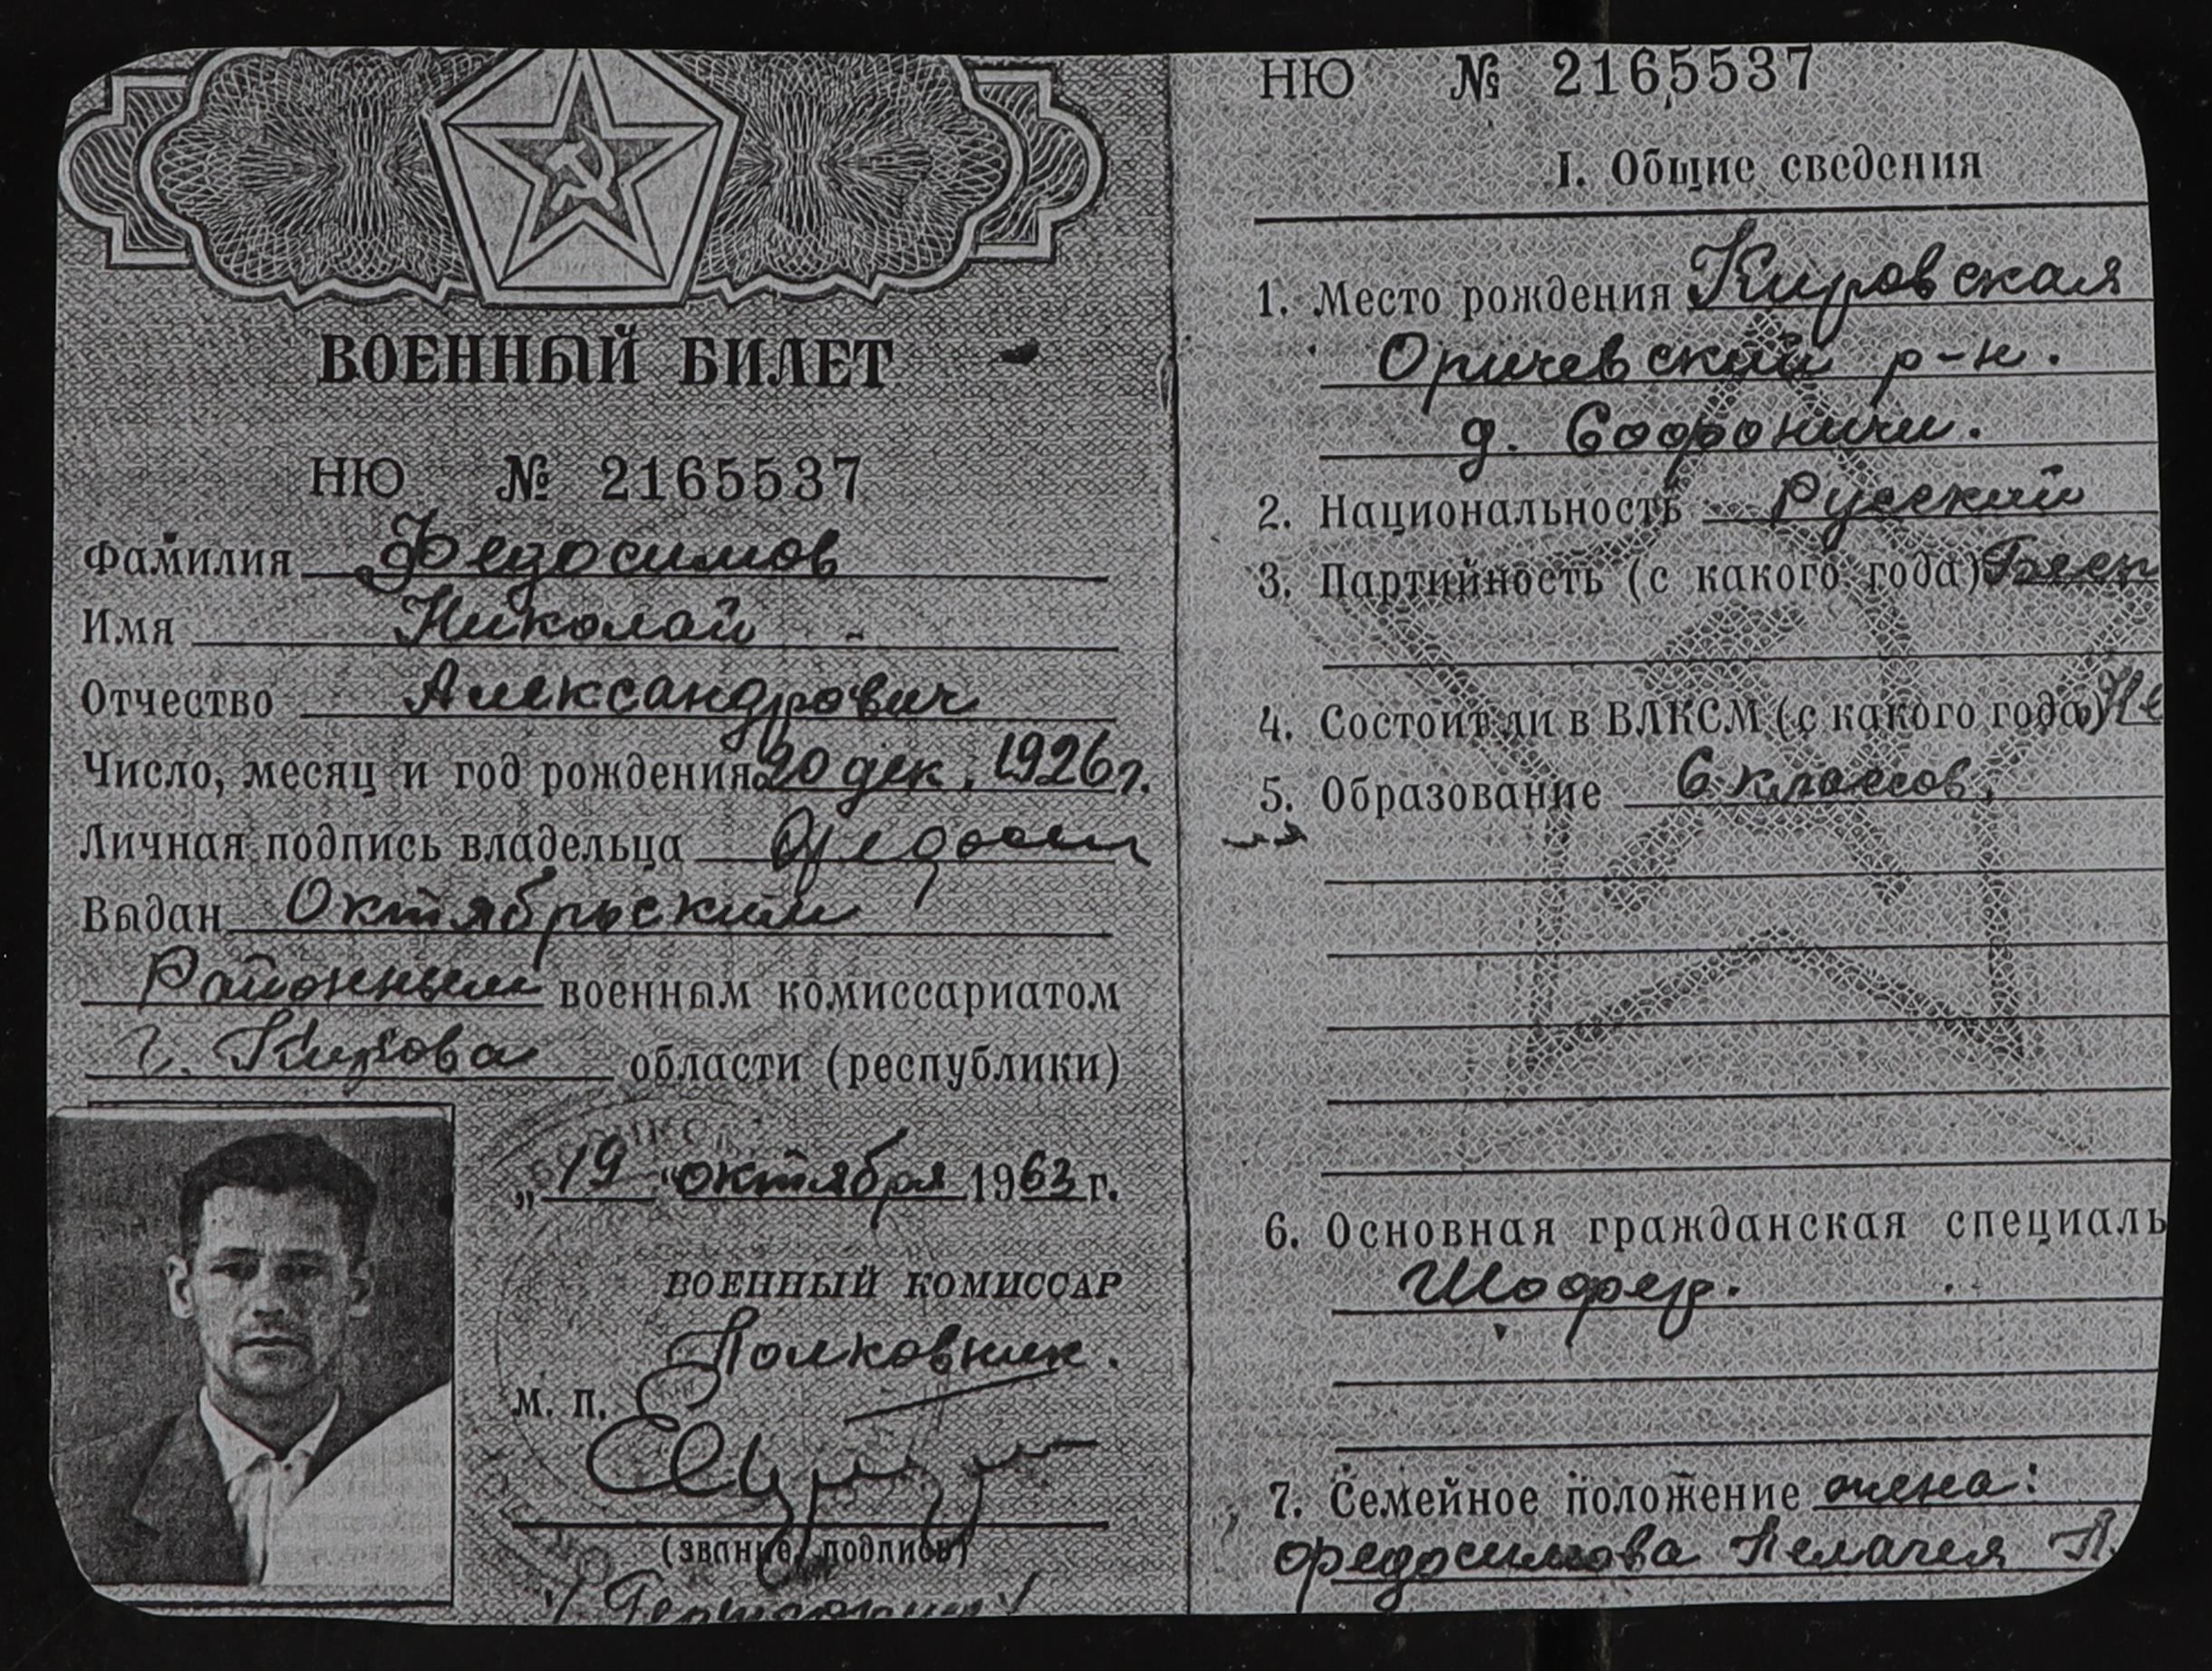 ВОЕННЫЙ БИЛЕТ
НЮ № 2165537
Фамилия Федосимов
Имя Николай
Отчество Александрович
Число, месяц и год рождения 20 дек. 1926 г.
Личная подпись владельца Федосим
Выдан Октябрьским
Районным военным комиссариатом
г. Кирова области (республики)
„19“ октября 1963 г.
ВОЕННЫЙ КОМИССАР
Полковник.
М. П.
(звание, подпись)
НЮ № 2165537
I. Общие сведения
1. Место рождения Кировская
Оричевский р-н.
д. Софроничи.
2. Национальность Русский
3. Партийность (с какого года) Бесп
4. Состоит ли в ВЛКСМ (с какого года) Не
5. Образование 6 классов.
6. Основная гражданская специаль
Шофер.
7. Семейное положение жена:
Федосимова Пелагея П.